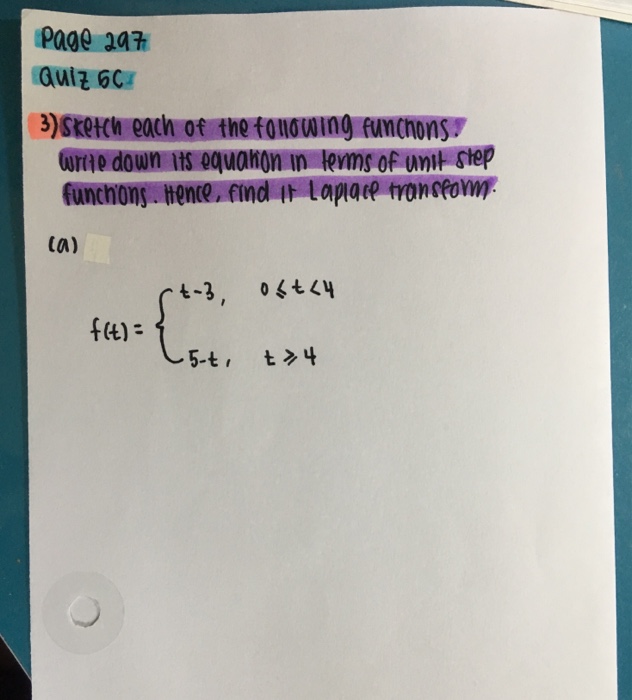 Page 297
Quiz 6C
3) Sketch each of the following functions.
Write down its equation in terms of unit step
functions. Hence, find it Laplace transform.
(a)
t-3, 0 ≤ t < 4
f(t) = {
5-t, t ≥ 4